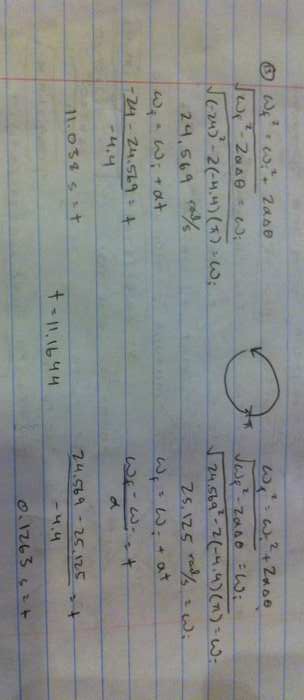 (13) ωf² = ωi² + 2αΔθ
√(ωf² - 2αΔθ) = ωi
√((-24)² - 2(-4.4)(π)) = ωi
24.569 rad/s
ωf = ωi + αt
(-24 - 24.569)/-4.4 = t
11.038 s = t
π
ωf² = ωi² + 2αΔθ
√(ωf² - 2αΔθ) = ωi
√(24.569² - 2(-4.4)(π)) = ωi
25.125 rad/s = ωi
ωf = ωi + αt
(ωf - ωi)/α = t
(24.569 - 25.125)/-4.4 = t
0.1263 s = t
t = 11.1644